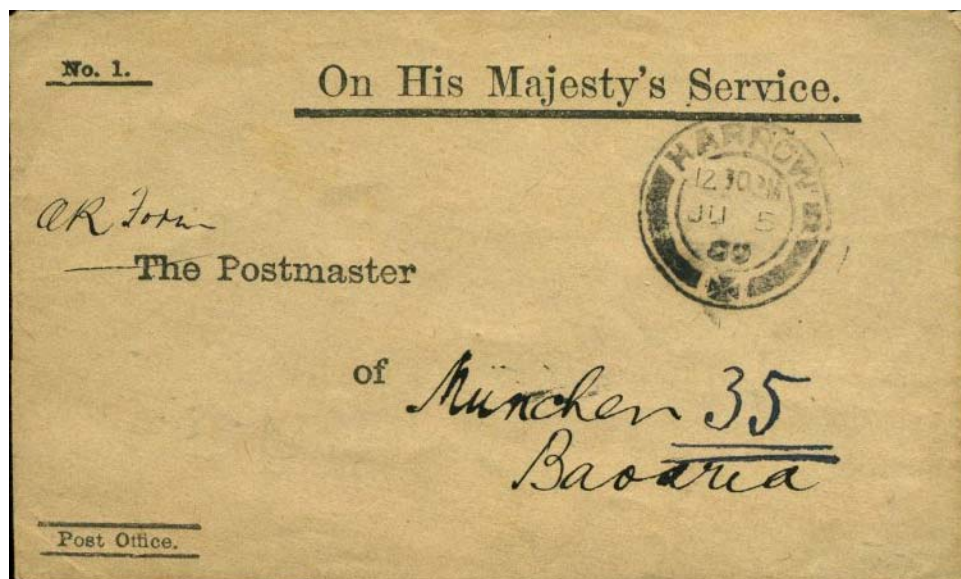 No. 1.
On His Majesty's Service.
HARROW
12 30 PM
JU 5
09
AR Form
The Postmaster
of München 35
Bavaria
Post Office.